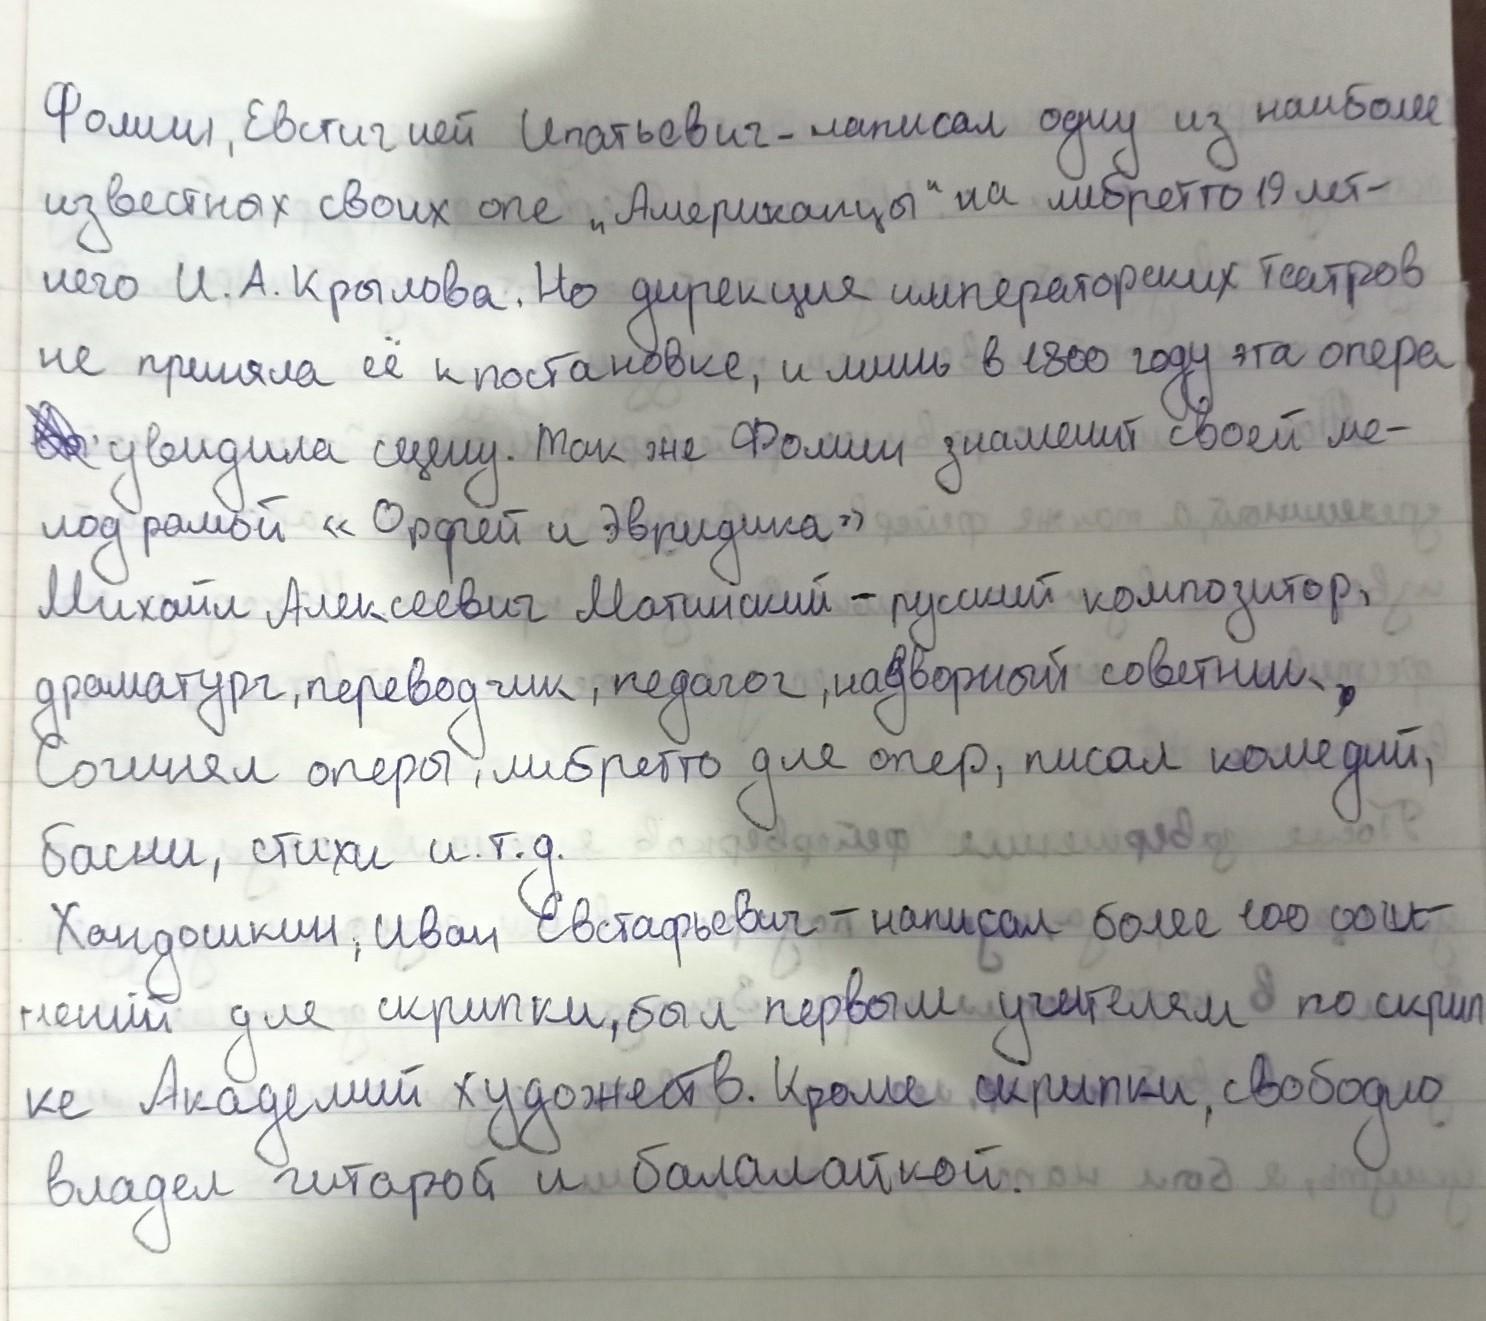 Фомин, Евстигней Ипатьевич - написал одну из наиболее
известных своих опе „Американцы“ на либретто 19 лет-
него И.А. Крылова. Но дирекция императорских театров
не приняла её к постановке, и лишь в 1800 году эта опера
увидила сцену. Так же Фомин знаменит своей ме-
лодрамой «Орфей и Эвридика»
Михаил Алексеевич Матинский - русский композитор,
драматург, переводчик, педагог, надворный советник,
Сочинял оперы, либретто для опер, писал комедий,
басни, стихи и.т.д.
Хандошкин, Иван Евстафьевич - написал более 100 сочи-
нений для скрипки, был первым учителям по скрип
ке Академий художеств. Кроме скрипки, свободно
владел гитарой и балалайкой.